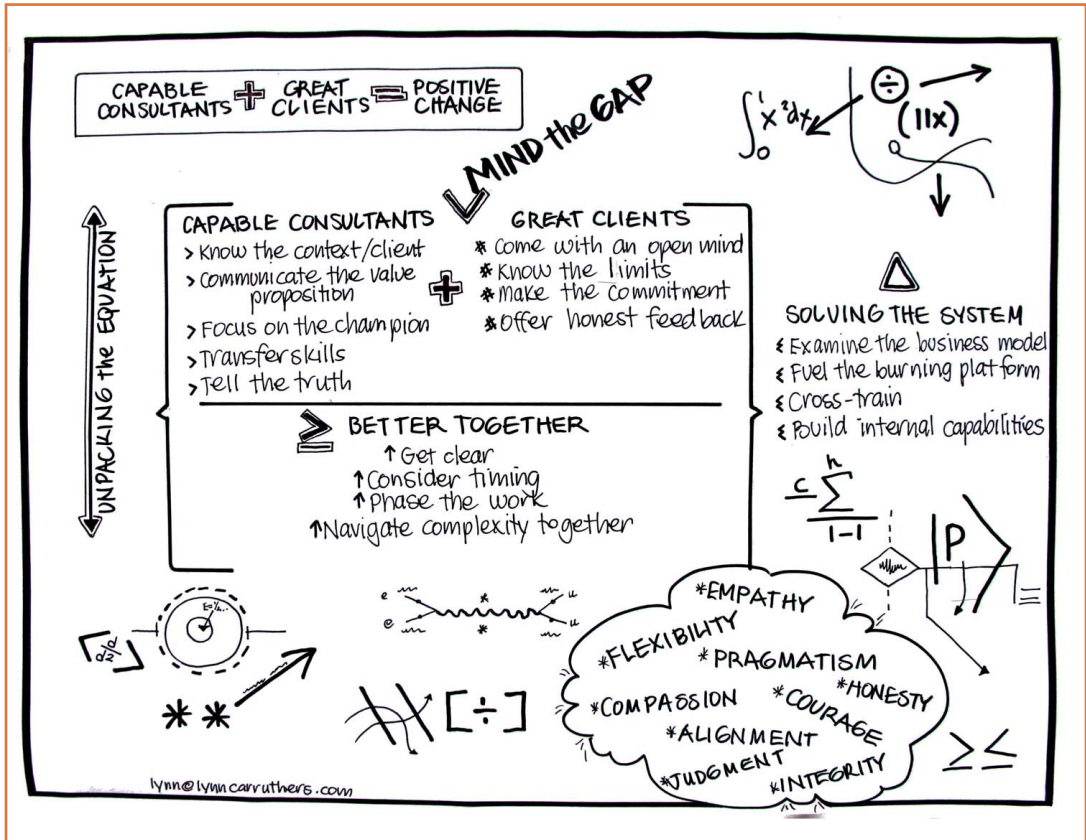 CAPABLE CONSULTANTS + GREAT CLIENTS = POSITIVE CHANGE
MIND the GAP
∫₀¹ x²dx
÷
(11x)
UNPACKING the EQUATION
CAPABLE CONSULTANTS
> Know the context/client
> Communicate the value
proposition
> Focus on the champion
> Transfer skills
> Tell the truth
+
GREAT CLIENTS
* Come with an open mind
* Know the limits
* Make the commitment
* Offer honest feedback
≥ BETTER TOGETHER
↑ Get clear
↑ Consider timing
↑ Phase the work
↑ Navigate complexity together
Δ
SOLVING THE SYSTEM
Examine the business model
Fuel the burning platform
Cross-train
Build internal capabilities
c
n
Σ
1-1
|P⟩
e
e
u
u
* *
[÷]
*EMPATHY
*FLEXIBILITY
*PRAGMATISM
*COMPASSION
*COURAGE
*HONESTY
*ALIGNMENT
*JUDGMENT
*INTEGRITY
≥ ≤
lynn@lynncarruthers.com